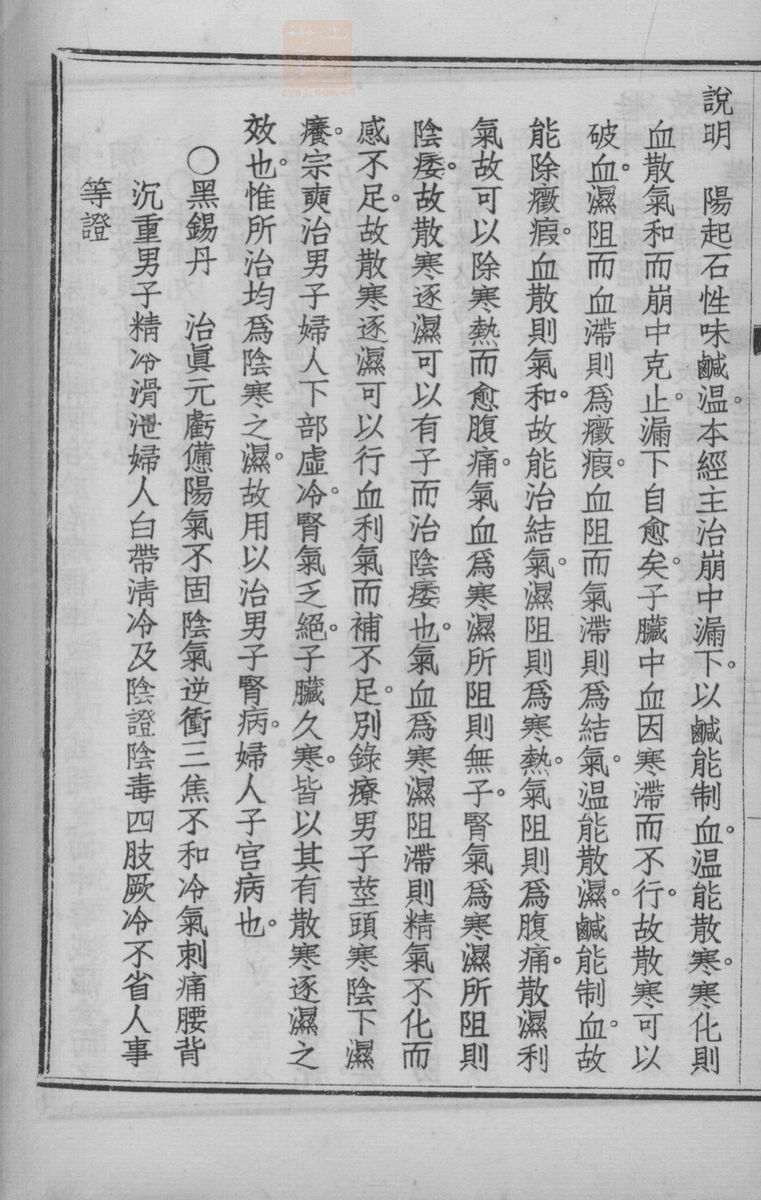 說明　陽起石性味鹹温。本經主治崩中漏下。以鹹能制血。温能散寒。寒化則
血散氣和而崩中克止。漏下自愈矣。子臟中血因寒滯而不行。故散寒可以
破血。濕阻而血滯則爲癥瘕。血阻而氣滯則爲結氣。温能散濕。鹹能制血。故
能除癥瘕。血散則氣和。故能治結氣。濕阻則爲寒熱。氣阻則爲腹痛。散濕利
氣故可以除寒熱而愈腹痛。氣血爲寒濕所阻則無子。腎氣爲寒濕所阻則
陰痿。故散寒逐濕可以有子而治陰痿也。氣血爲寒濕阻滯則精氣不化而
感不足。故散寒逐濕可以行血利氣而補不足。別錄療男子莖頭寒陰下濕
癢。宗奭治男子婦人下部虛冷。腎氣乏絕。子臟久寒。皆以其有散寒逐濕之
效也。惟所治均爲陰寒之濕。故用以治男子腎病。婦人子宮病也。
○黑錫丹　治眞元虧憊陽氣不固陰氣逆衝三焦不和冷氣刺痛腰背
沉重男子精冷滑泄婦人白帶淸冷及陰證陰毒四肢厥冷不省人事
等證
zysj.com.cn